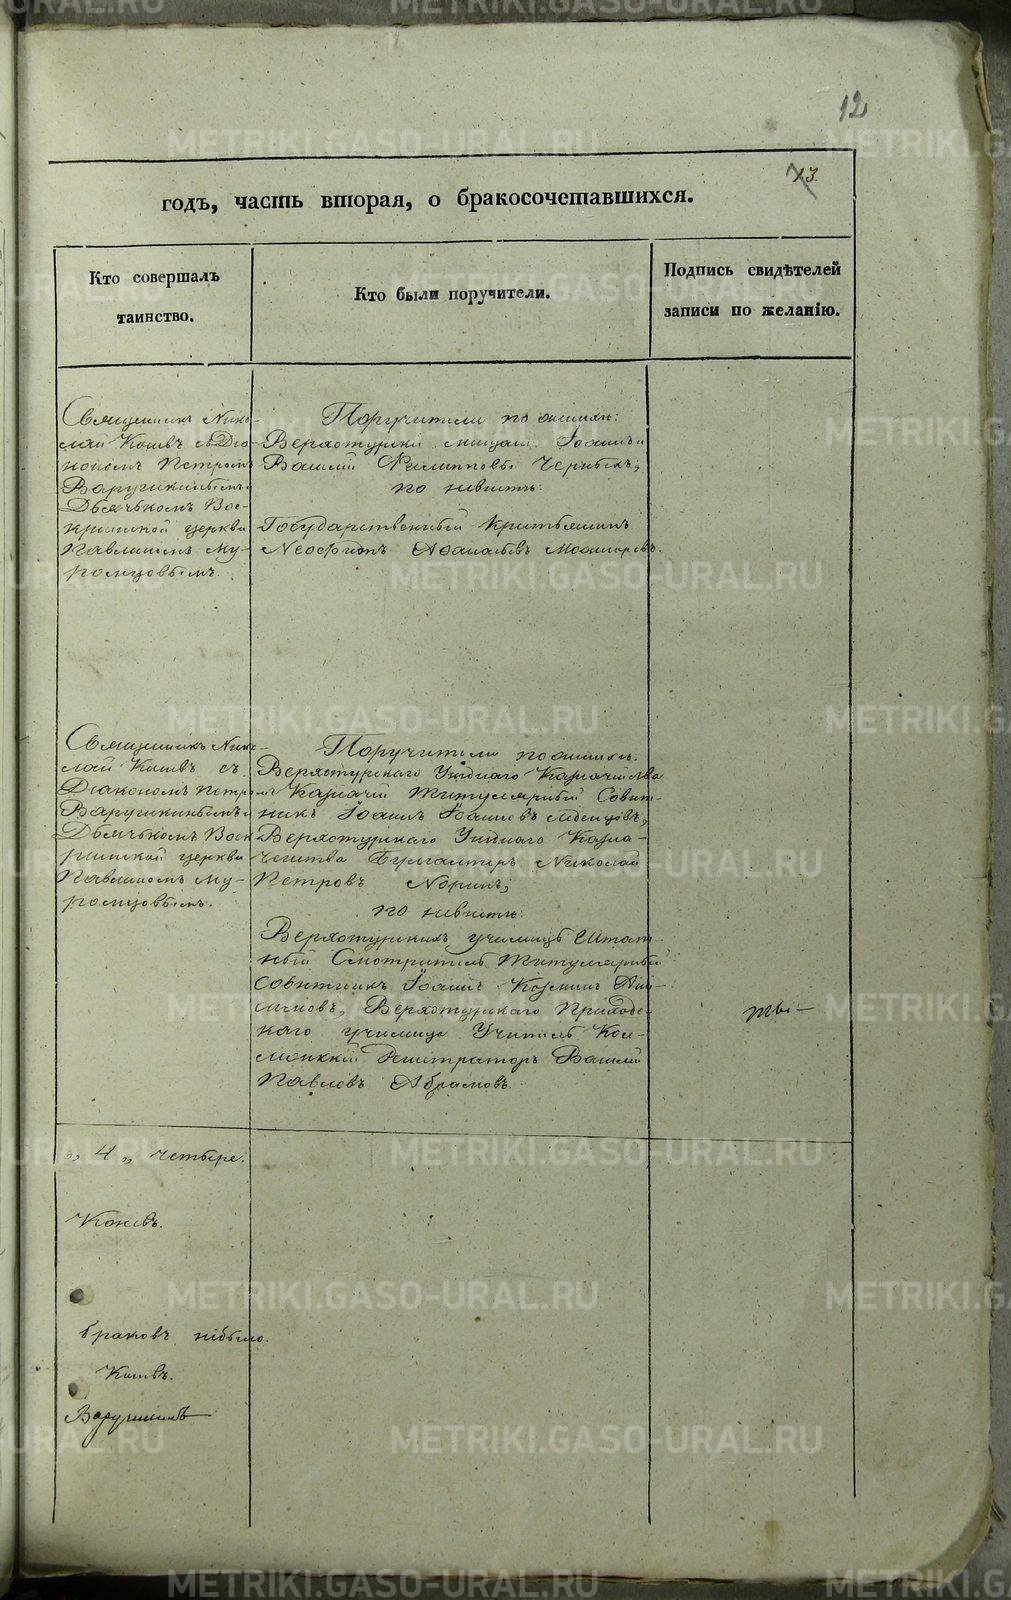 12
13.
годъ, часть вторая, о бракосочетавшихся.
Кто совершалъ
таинство.
Кто были поручители.
Подпись свидѣтелей
записи по желанію.
Священникъ Нико-
лай Коневъ съ Дiа-
кономъ Петромъ
Варушкинымъ и
Дьячькомъ Вос-
кресенской церкви
Павлиномъ Му-
ромцовымъ.
Поручители по женихѣ:
Верхотурскiе мещане Iоаннъ и
Василiй Филипповы
по невѣстѣ:
Государственный крестьянинъ
Неофидъ Афанасьевъ
Священникъ Нико-
лай Коневъ съ
Дiакономъ Петромъ
Варушкинымъ и
Дьячькомъ Воск-
ресенской церкви
Павлиномъ Му-
ромцовымъ.
Поручители по женихѣ.
Верхотурскаго Уѣзднаго Казначейства
Казначей Титулярный Совѣт-
никъ Iоаннъ Iоанновъ
Верхотурскаго Уѣзднаго Казна-
чейства Бухгалтеръ Николай
Петровъ
по невѣстѣ:
Верхотурскихъ училищъ Штат-
ный Смотритель Титулярный
Совѣтникъ Iоаннъ Козминъ
Верхотурскаго Приходс-
каго училища Учитель Кол-
лежскiй Регистраторъ Василiй
Павловъ Абрамовъ.
„ 4 „ четыре.
Коневъ.
браковъ небыло.
Коневъ.
Варушкинъ
METRIKI.GASO-URAL.RU